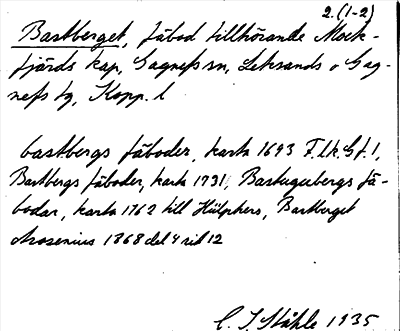 2. (1-2)
Bastberget, fäbod tillhörande Mock-
fjärds kap, Gagnefs sn, Leksands o Gag-
nefs tg, Kopp. l
bastbergs fäboder, karta 1693 F.l.k. Gf. 1,
Bastbergs fäboder, karta 1731, Bastugubergs fä-
bodar, karta 1762 till Hülphers, Bastberget
Arosenius 1868 del 4 sid 12
C. I. Ståhle 1935